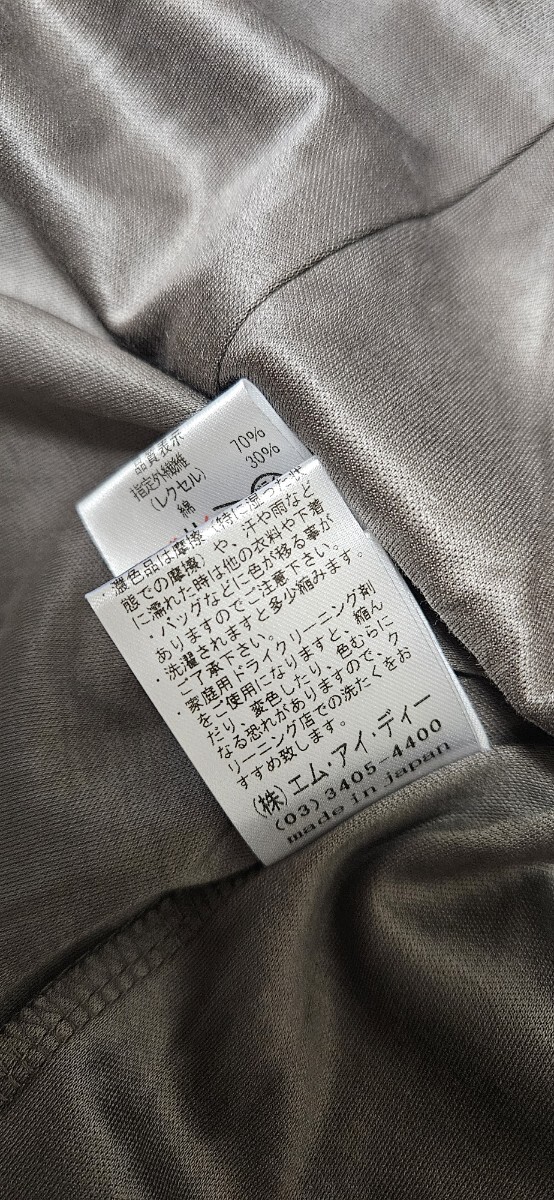 品質表示
指定外繊維 70%
(レクセル)
綿 30%
・濃色品は摩擦(特に湿った状
態での摩擦)や、汗や雨など
に濡れた時は他の衣料や下着
・バッグなどに色が移る事が
ありますのでご注意下さい。
・洗濯されますと多少縮みます。
ご了承下さい。
・家庭用ドライクリーニング剤
をご使用になりますと、縮ん
だり、変色したり、色むらに
なる恐れがありますので、ク
リーニング店での洗たくをお
すすめ致します。
(株)エム・アイ・ディー
(03)3405-4400
made in japan